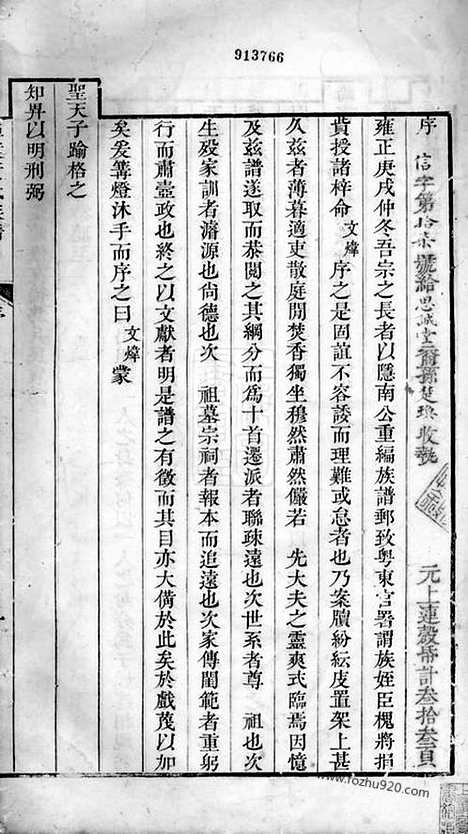 913766
序
信字第拾柒號給思誠堂
收執
元上連㲄帋計叁拾叁頁
雍正庚戌仲冬吾宗之長者以隱南公重編族譜郵致粤東官署謂族姪臣槐將捐
貲授諸梓命 文煒 序之是固誼不容諉而理難或怠者也乃案牘紛紜庋置架上甚
久兹者薄暮適吏散庭閒焚香獨坐穆然肅然儼若 先大夫之靈爽式臨焉因憶
及兹譜遂取而恭閱之其綱分而為十首遷派者聯疎遠也次世系者尊 祖也次
生殁家訓者濬源也尚德也次 祖墓宗祠者報本而追遠也次家傳閨範者重躬
行而肅壼政也終之以文獻者明是譜之有徵而其目亦大備於此矣於戲蔑以加
矣爰篝燈沐手而序之曰 文煒 蒙
聖天子踰格之
知畀以明刑弼
www.fozhu920.com